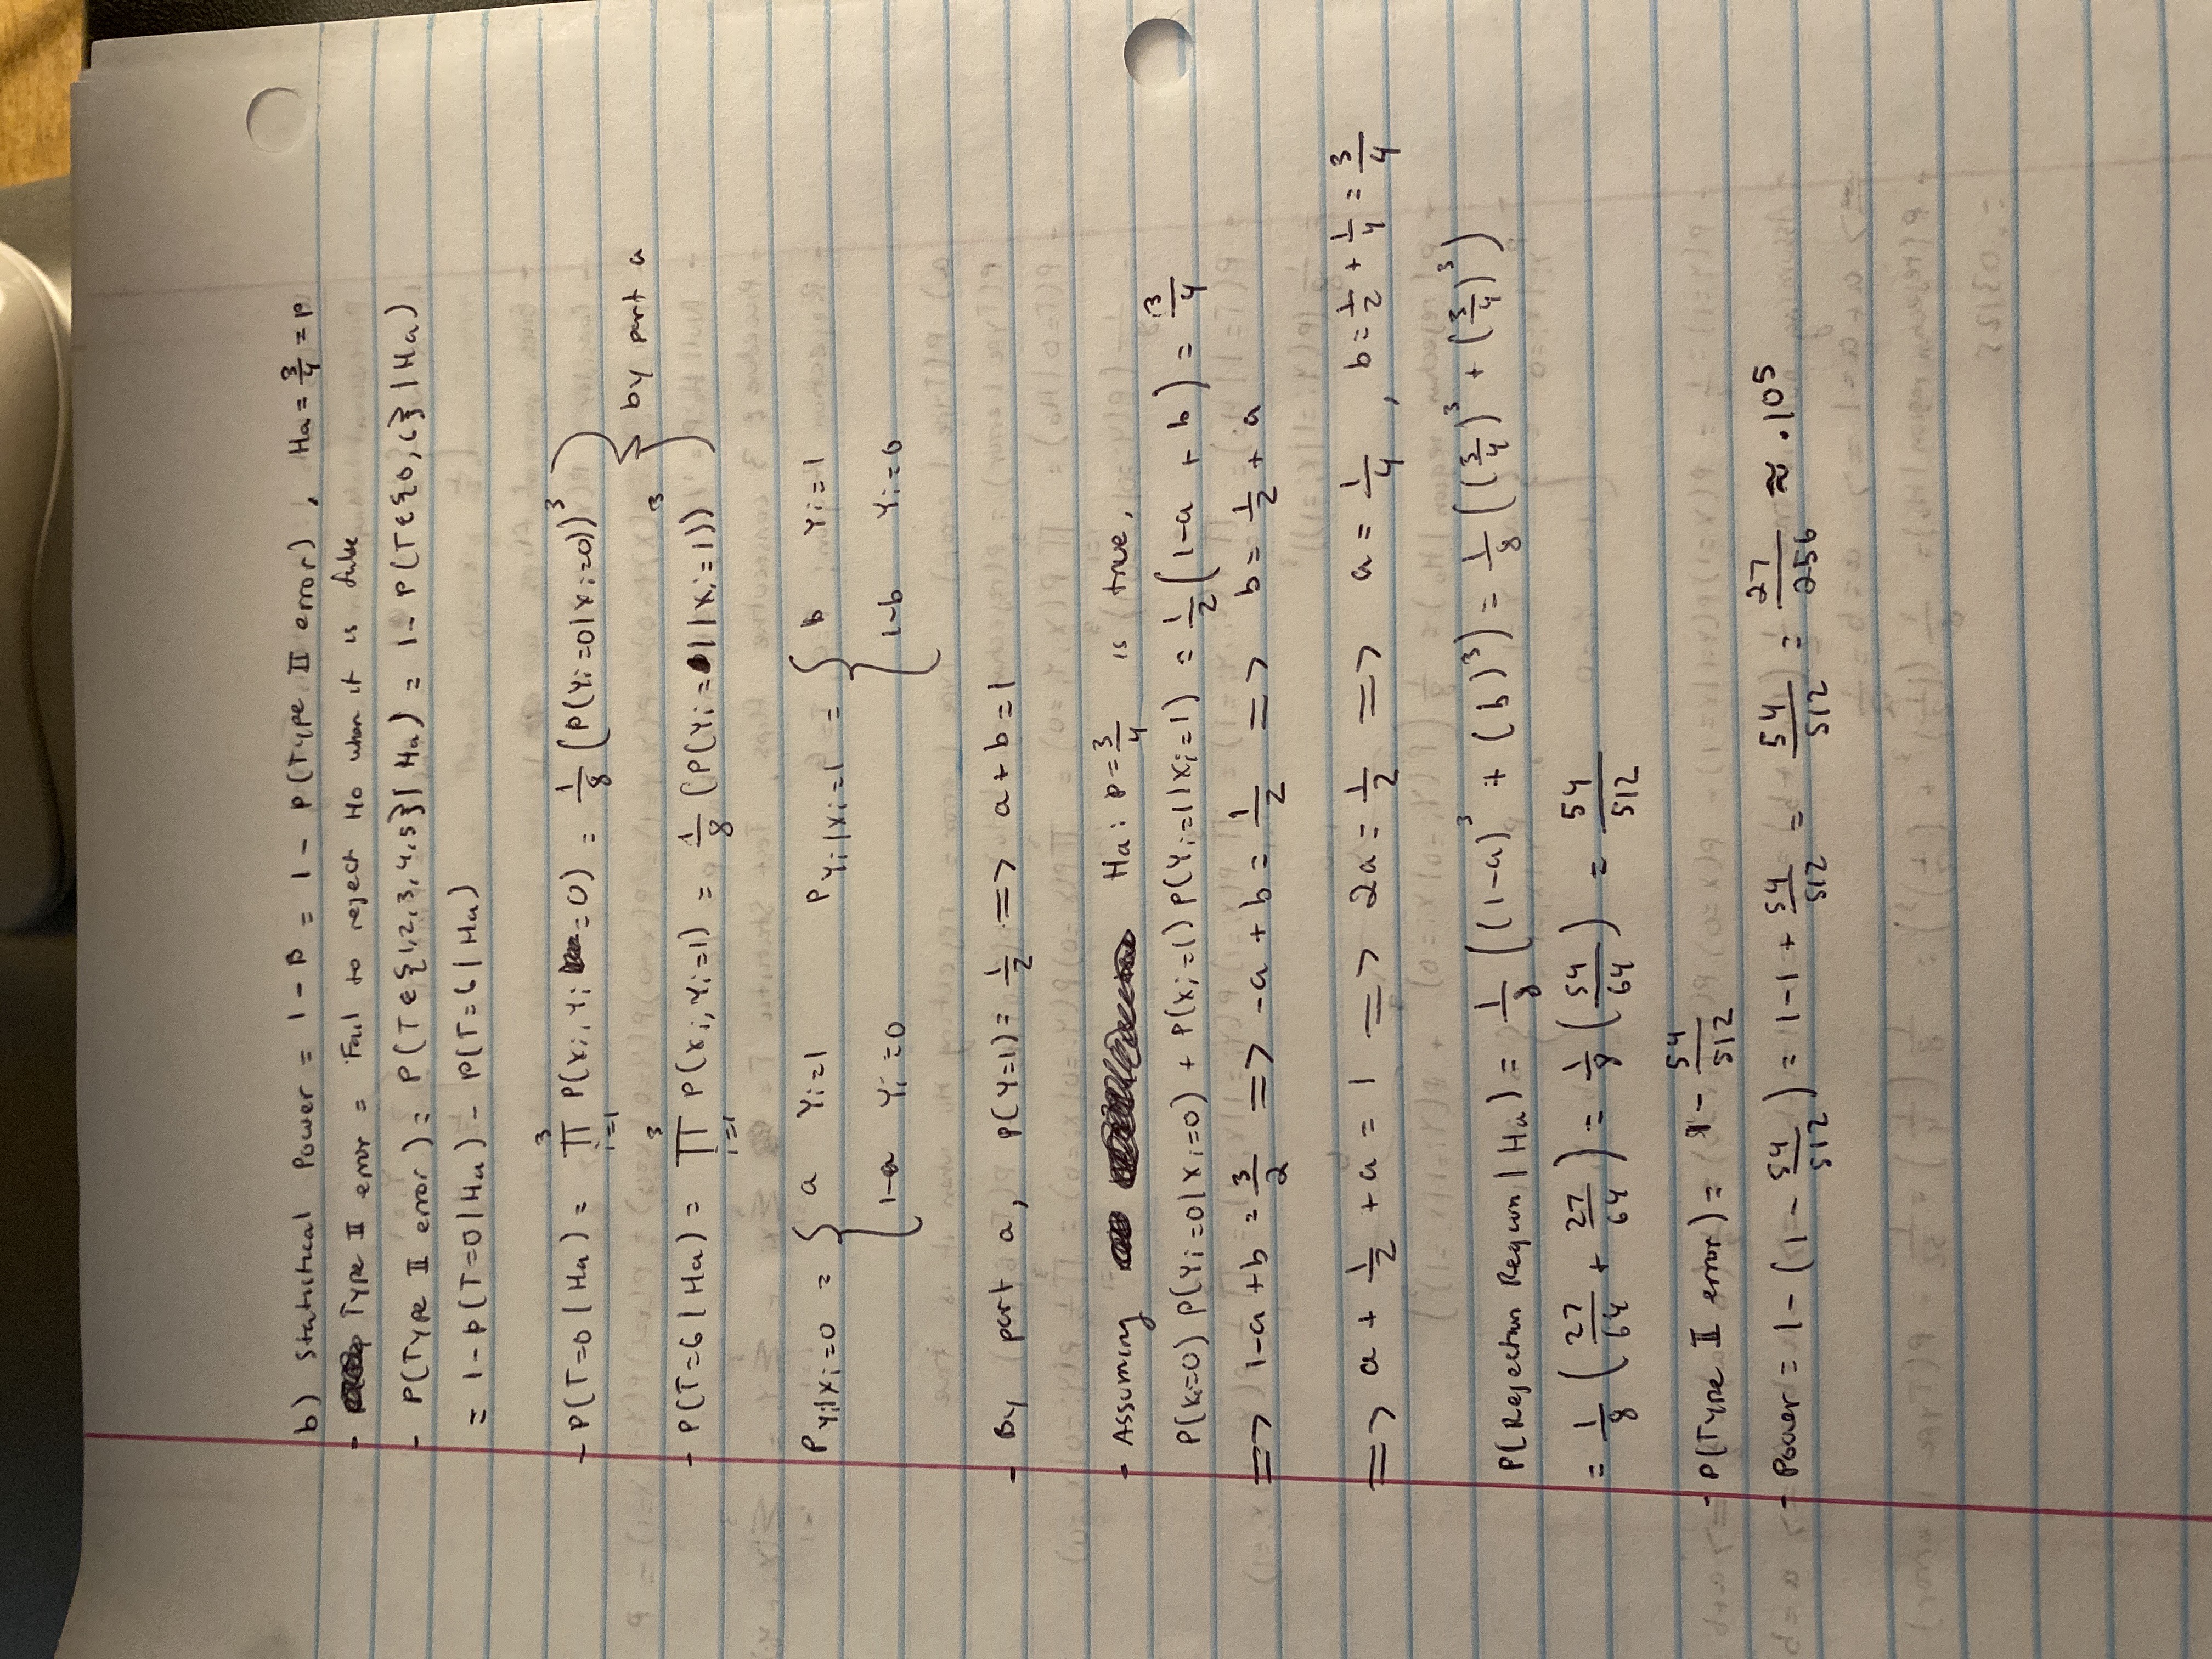 b) Statistical Power = 1 - β = 1 - P(Type II error), Ha = 3/4 = p
- Type II error = Fail to reject Ho when it is false
- P(Type II error) = P(T ∈ {1,2,3,4,5} | Ha) = 1 - P(T ∈ {0,6} | Ha)
= 1 - P(T=0 | Ha) - P(T=6 | Ha)
- P(T=0 | Ha) = ∏_{i=1}^{3} P(Xi, Yi = 0) = 1/8 (P(Yi=0 | Xi=0))^3
by part a
- P(T=6 | Ha) = ∏_{i=1}^{3} P(Xi, Yi=1) = 1/8 (P(Yi=1 | Xi=1))^3
P_{Yi|Xi=0} = { a Yi=1 P_{Yi|Xi=1} = { b Yi=1
1-a Yi=0 1-b Yi=0
- By part a, P(Y=1) = 1/2 => a + b = 1
- Assuming Ha: p = 3/4 is true,
P(Xi=0) P(Yi=0 | Xi=0) + P(Xi=1) P(Yi=1 | Xi=1) = 1/2 (1-a + b) = 3/4
=> 1-a+b = 3/2 => -a + b = 1/2 => b = 1/2 + a
=> a + 1/2 + a = 1 => 2a = 1/2 => a = 1/4, b = 1/2 + 1/4 = 3/4
P(Rejection Region | Ha) = 1/8 ((1-a)^3 + (b)^3) = 1/8 ((3/4)^3 + (3/4)^3)
= 1/8 (27/64 + 27/64) = 1/8 (54/64) = 54/512
- P(Type II error) = 1 - 54/512
- Power = 1 - (1 - 54/512) = 1-1 + 54/512 = 54/512 = 27/256 ≈ .105